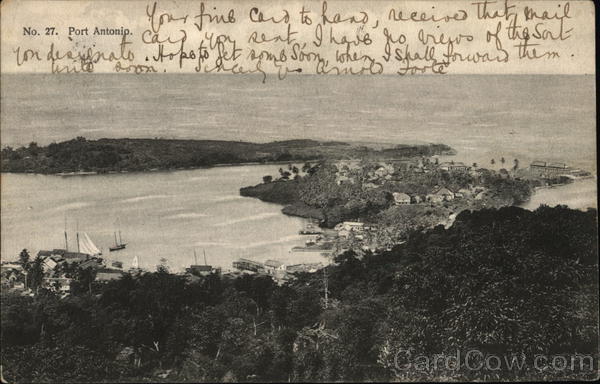 Your fine card to hand, received that mail
No. 27. Port Antonio.
card you sent. I have no views of the Sort
you designate. Hope to get some Soon, when I shall forward them.
Write soon. Sincerely yrs Arnold Foote
CardCow.com